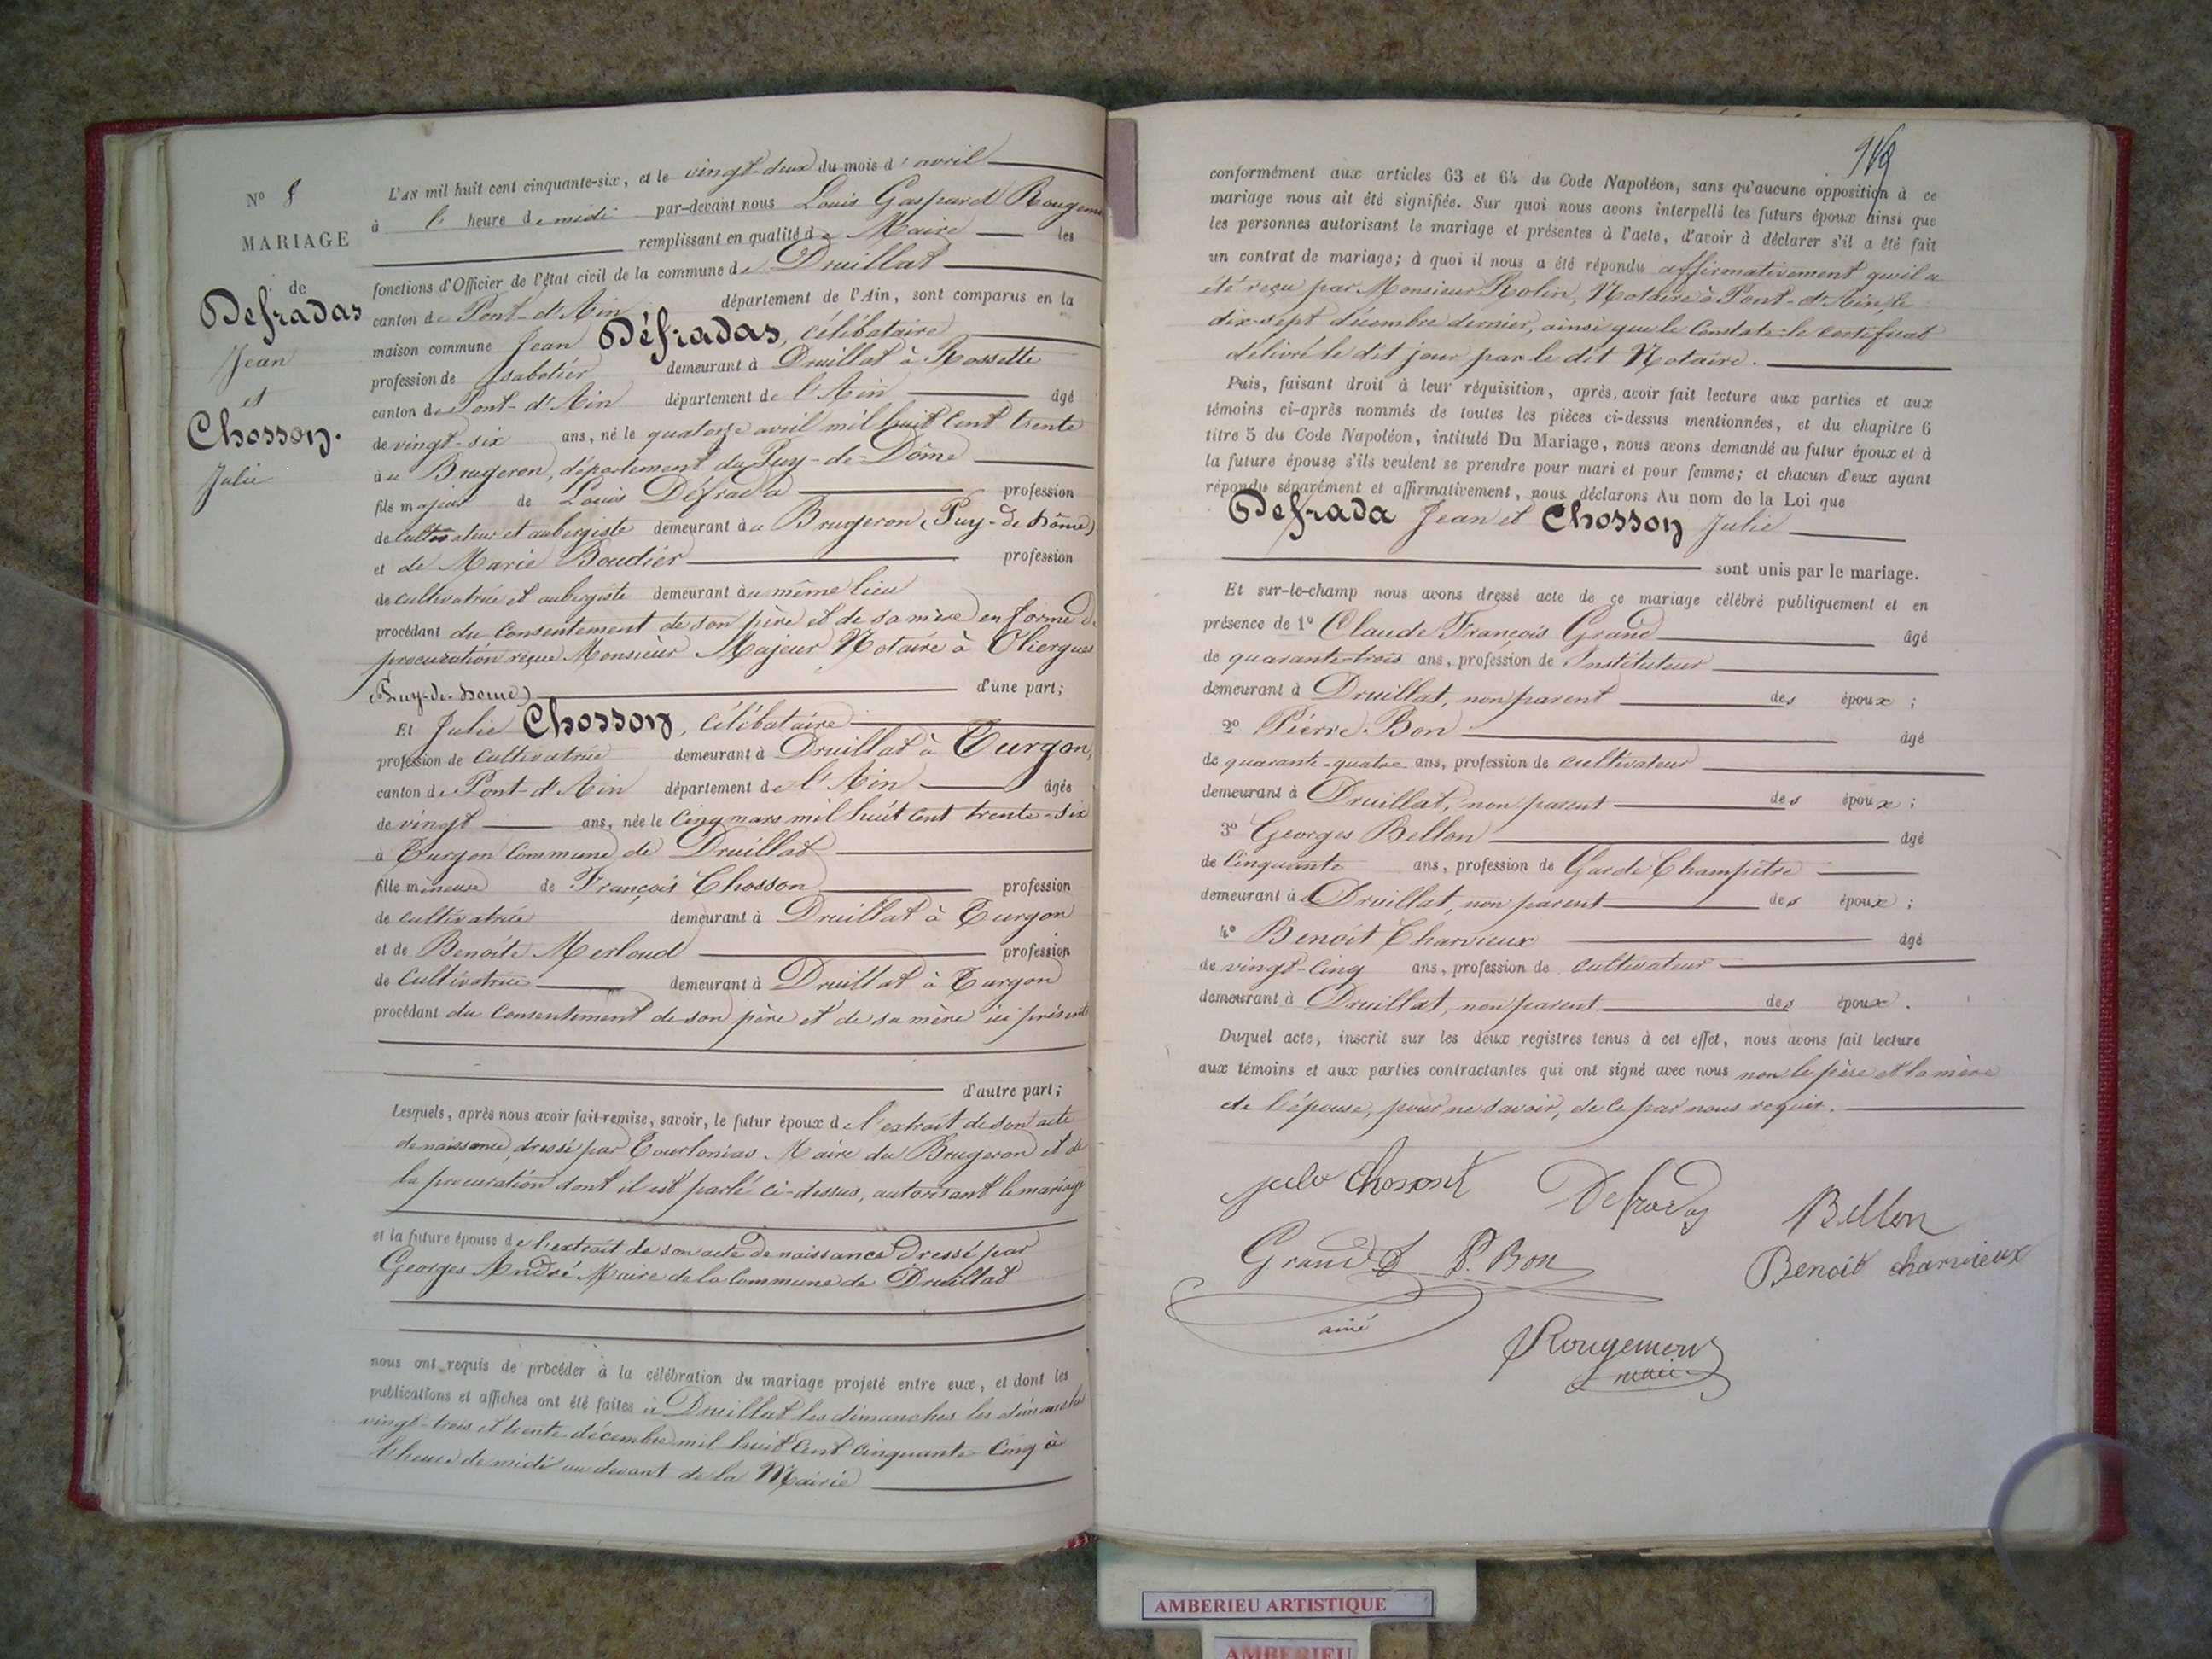 N° 8
MARIAGE
de
Defradas
Jean
et
Chosson.
Julie
L'AN mil huit cent cinquante-six, et le vingt-deux du mois d'avril
à l' heure de midi par-devant nous Louis Gaspard Rougemo
remplissant en qualité de Maire les
fonctions d'Officier de l'état civil de la commune de Druillat
canton de Pont-d'Ain département de l'Ain, sont comparus en la
maison commune Jean Défradas, célibataire
profession de sabotier demeurant à Druillat à Rossette
canton de Pont-d'Ain département de l'Ain âgé
de vingt-six ans, né le quatorze avril mil huit cent trente
au Brugeron, département du Puy-de-Dôme
fils majeur de Louis Défrada profession
de cultivateur et aubergiste demeurant au Brugeron (Puy-de-Dôme)
et de Marie Boudier profession
de cultivatrice et aubergiste demeurant au même lieu
procédant du consentement de son père et de sa mère en forme de
procuration reçue Monsieur Majeur Notaire à Oliergues
(Puy-de-Dome) d'une part;
Et Julie Chosson, célibataire
profession de cultivatrice demeurant à Druillat à Turgon,
canton de Pont-d'Ain département de l'Ain âgée
de vingt ans, née le cinq mars mil huit cent trente-six
à Turgon commune de Druillat
fille mineure de François Chosson profession
de cultivatrice demeurant à Druillat à Turgon
et de Benoite Merloud profession
de cultivatrice demeurant à Druillat à Turgon
procédant du consentement de son père et de sa mère ici présents
d'autre part;
Lesquels, après nous avoir fait remise, savoir, le futur époux de l'extrait de son acte
de naissance, dressé par Tourlonias Maire du Brugeron et de
la procuration dont il est parlé ci-dessus, autorisant le mariage
et la future épouse de l'extrait de son acte de naissance dressé par
Georges André Maire de la commune de Druillat
nous ont requis de procéder à la célébration du mariage projeté entre eux, et dont les
publications et affiches ont été faites à Druillat les dimanches les dimanches
vingt-trois et trente décembre mil huit cent cinquante-cinq à
l'heure de midi au devant de la Mairie
conformément aux articles 63 et 64 du Code Napoléon, sans qu'aucune opposition à ce
mariage nous ait été signifiée. Sur quoi nous avons interpellé les futurs époux ainsi que
les personnes autorisant le mariage et présentes à l'acte, d'avoir à déclarer s'il a été fait
un contrat de mariage; à quoi il nous a été répondu affirmativement qu'il a
été reçu par Monsieur Rolin, Notaire à Pont-d'Ain, le
dix-sept décembre dernier, ainsi que le constate le certificat
délivré le dit jour par le dit Notaire.
Puis, faisant droit à leur réquisition, après avoir fait lecture aux parties et aux
témoins ci-après nommés de toutes les pièces ci-dessus mentionnées, et du chapitre 6
titre 5 du Code Napoléon, intitulé Du Mariage, nous avons demandé au futur époux et à
la future épouse s'ils veulent se prendre pour mari et pour femme; et chacun d'eux ayant
répondu séparément et affirmativement, nous déclarons Au nom de la Loi que
Defrada Jean et Chosson Julie
sont unis par le mariage.
Et sur-le-champ nous avons dressé acte de ce mariage célébré publiquement et en
présence de 1° Claude François Grand âgé
de quarante-trois ans, profession de Instituteur
demeurant à Druillat, non parent des époux;
2° Pierre Bon âgé
de quarante-quatre ans, profession de cultivateur
demeurant à Druillat, non parent des époux;
3° Georges Bellon âgé
de cinquante ans, profession de Garde Champêtre
demeurant à Druillat, non parent des époux;
4° Benoit Charvieux âgé
de vingt-cinq ans, profession de cultivateur
demeurant à Druillat, non parent des époux.
Duquel acte, inscrit sur les deux registres tenus à cet effet, nous avons fait lecture
aux témoins et aux parties contractantes qui ont signé avec nous non le père et la mère
de l'épouse, pour ne savoir, de ce par nous requis.
Defradas Bellon
Grand P. Bon Benoit charvieux
ainé
Rougemont
maire
AMBERIEU ARTISTIQUE
AMBERIEU